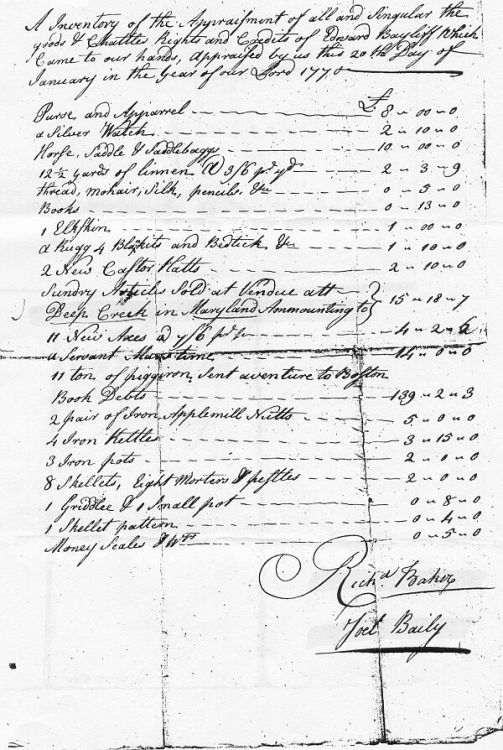 A Inventory of the Appraisment of all and Singular the
goods & Chattles Rights and Credits of Edward Bayliff Which
Came to our hands, Appraised by us this 20th Day of
January in the Year of our Lord 1770
Purse and Apparrel £8 〃 00 〃 0
a Silver Watch 2 〃 10 〃 0
Horse, Saddle & Saddlebaggs 10 〃 00 〃 0
12½ yards of linnen @ 3/6 pr yd 2 〃 3 〃 9
thread, mohair, Silk, pencils, &c 0 〃 5 〃 0
Books 0 〃 13 〃 0
1 Elkskin 1 〃 00 〃 0
a Rugg 4 Blankits and Bedtick &c 1 〃 10 〃 0
2 New Castor Hatts 2 〃 10 〃 0
Sundry Articles Sold at Vendue att
Deep Creek in Maryland Ammounting to } 15 〃 18 〃 7
11 New Axes a 7/6 pr 4 〃 2 〃 6
a Servant Mans time 14 〃 0 〃 0
11 ton of piggiron, Sent aventure to Boston
Book Debts 139 〃 2 〃 3
2 pair of Iron Applemill Nutts 5 〃 0 〃 0
4 Iron Kettles 3 〃 15 〃 0
3 Iron pots 2 〃 0 〃 0
8 Skellets, Eight Morters & pestles 2 〃 0 〃 0
1 Griddlee & 1 Small pot 0 〃 8 〃 0
1 Skellet pattern 0 〃 4 〃 0
Money Scales & Wts 0 〃 5 〃 0
Richd Baker
Joel Baily